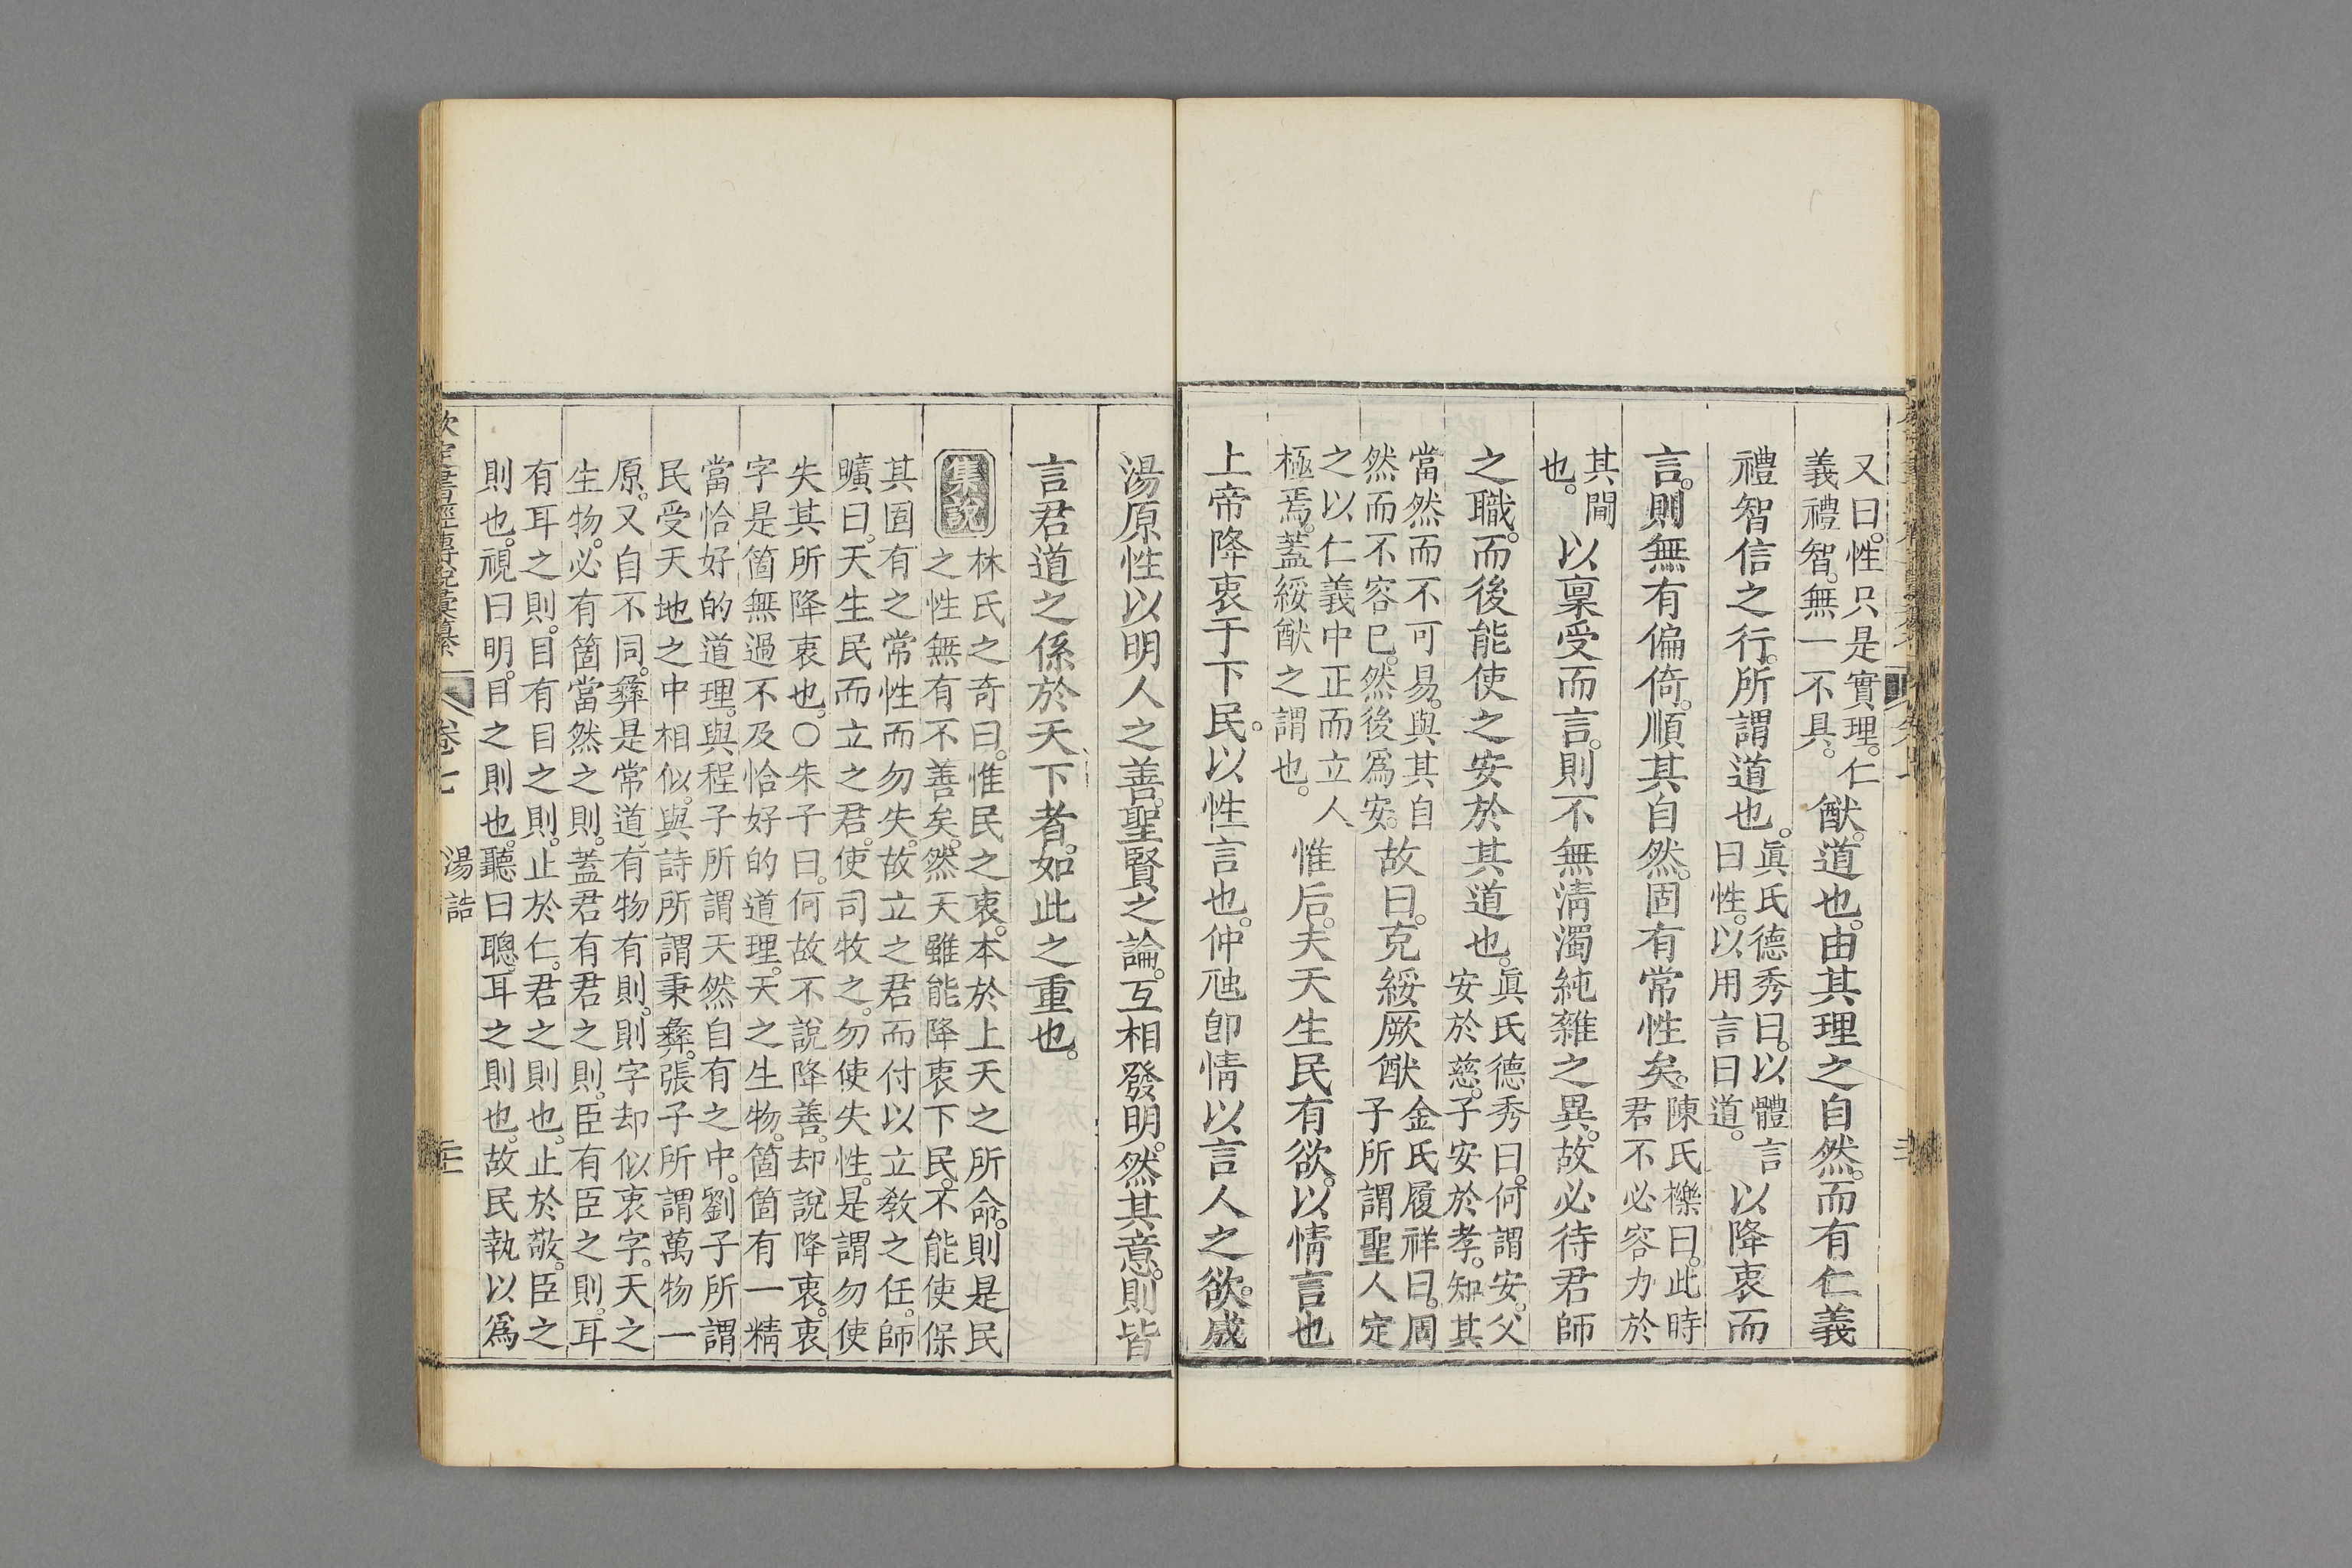 又曰。性只是實理。仁
義禮智。無一不具。
猷。道也。由其理之自然。而有仁義
禮智信之行。所謂道也。
眞氏德秀曰。以體言
曰性。以用言曰道。
以降衷而
言。則無有偏倚。順其自然。固有常性矣。
陳氏櫟曰。此時
君不必容力於
其間
也。
以稟受而言。則不無淸濁純雜之異。故必待君師
之職。而後能使之安於其道也。
眞氏德秀曰。何謂安。父
安於慈。子安於孝。知其
當然而不可易。與其自
然而不容已。然後爲安。
故曰。克綏厥猷
金氏履祥曰。周
子所謂聖人定
之以仁義中正而立人
極焉。蓋綏猷之謂也。
惟后。夫天生民有欲。以情言也
上帝降衷于下民。以性言也。仲虺卽情以言人之欲。成
湯原性以明人之善。聖賢之論。互相發明。然其意。則皆
言君道之係於天下者。如此之重也。
集說
林氏之奇曰。惟民之衷。本於上天之所命。則是民
之性無有不善矣。然天雖能降衷下民。不能使保
其固有之常性而勿失。故立之君而付以立敎之任。師
曠曰。天生民而立之君。使司牧之。勿使失性。是謂勿使
失其所降衷也。○朱子曰。何故不說降善。却說降衷。衷
字是箇無過不及恰好的道理。天之生物。箇箇有一精
當恰好的道理。與程子所謂天然自有之中。劉子所謂
民受天地之中相似。與詩所謂秉彝。張子所謂萬物一
原。又自不同。彝是常道。有物有則。則字却似衷字。天之
生物。必有箇當然之則。蓋君有君之則。臣有臣之則。耳
有耳之則。目有目之則。止於仁。君之則也。止於敬。臣之
則也。視曰明。目之則也。聽曰聰。耳之則也。故民執以爲
欽定書經傳說彙纂
卷七
湯誥